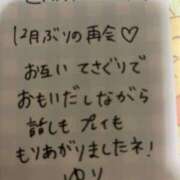 12月ぶりの再会♡
お互いてさぐりで
おもいだしながら
話しもプレイも
もりあがりましたネ!
ゆり